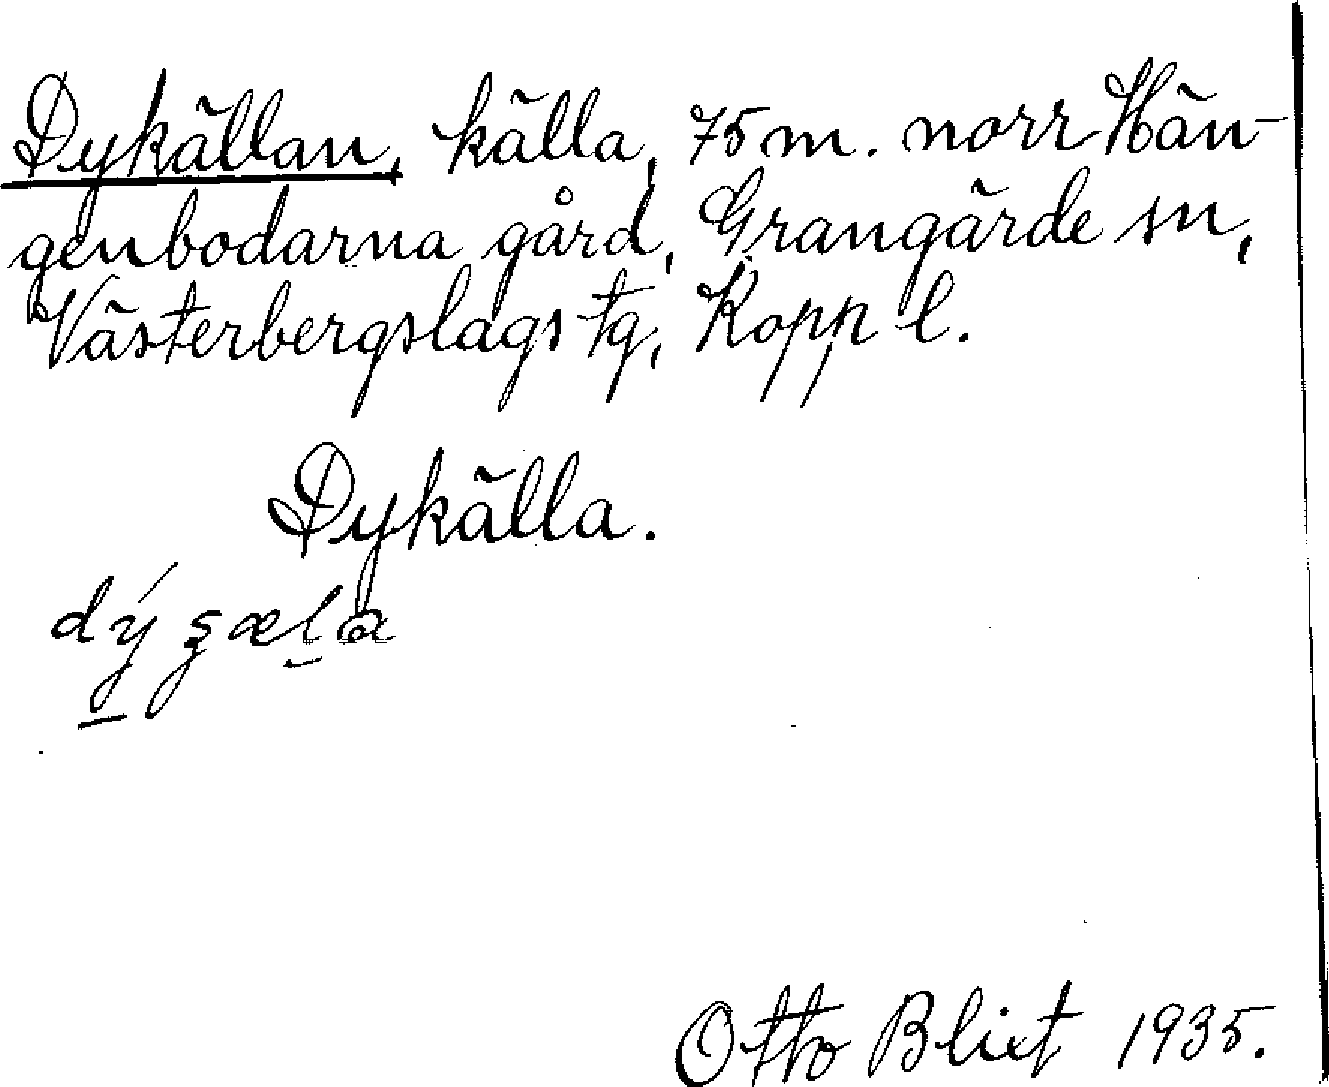 Dykällan, källa, 75 m. norr Hän-
genbodarna gård, Grangärde sn,
Västerbergslags tg, Kopp l.
Dykälla.
Otto Blixt 1935.